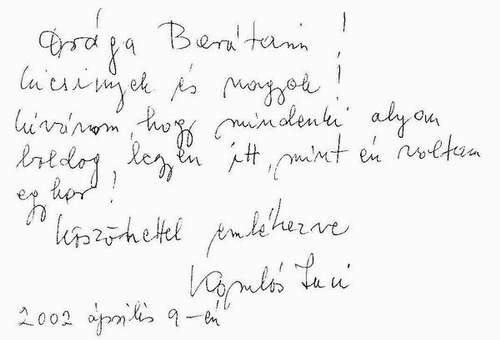 Drága Barátaim!
kicsinyek és nagyok!
kívánom, hogy mindenki olyan
boldog legyen itt, mint én voltam
egykor!
köszönettel emlékezve
Komlós Juci
2002 április 9-én